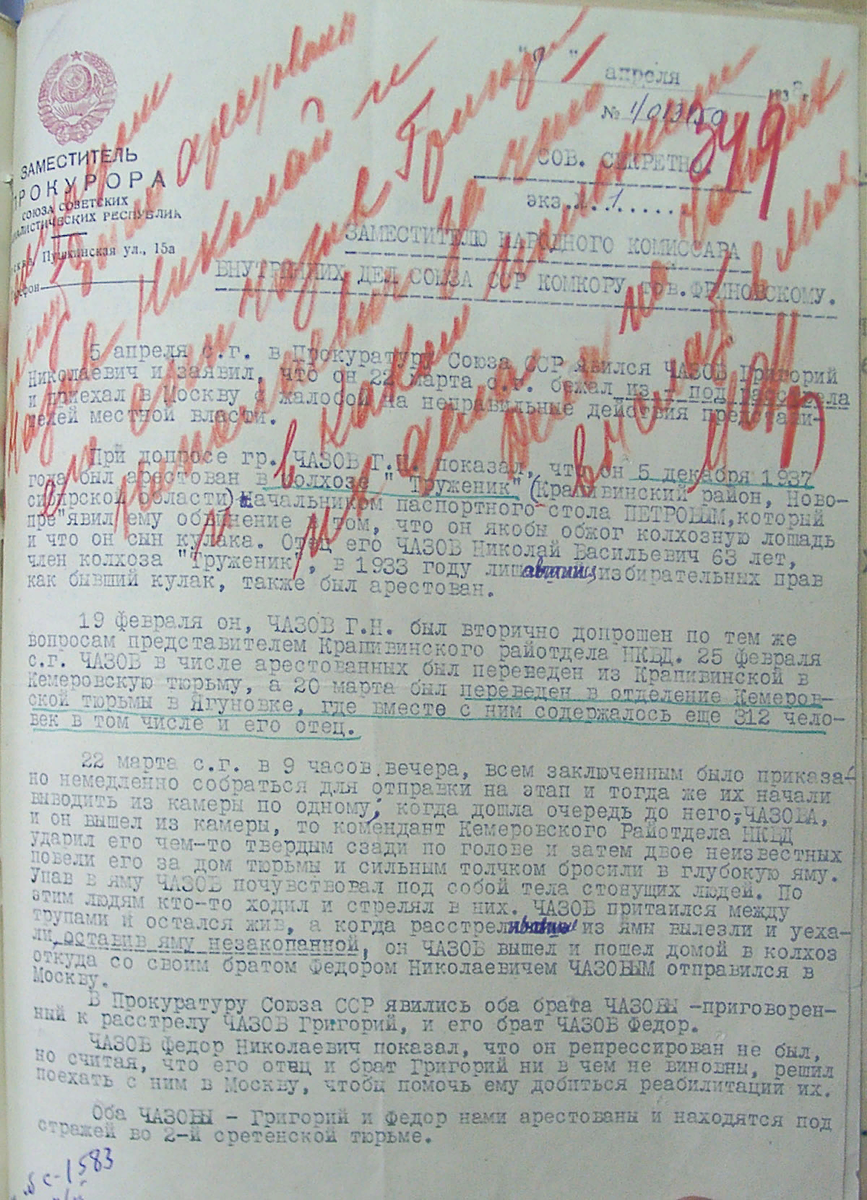 ЗАМЕСТИТЕЛЬ
ПРОКУРОРА
СОЮЗА СОВЕТСКИХ
РЕСПУБЛИК
Пушкинская ул., 15а
апреля
№
349
СОВ. СЕКРЕТНО.
экз. 1
ЗАМЕСТИТЕЛЮ НАРОДНОГО КОМИССАРА
ВНУТРЕННИХ ДЕЛ СОЮЗА ССР КОМКОРУ тов. ФРИНОВСКОМУ.
Николай и
Григорий
за что
5 апреля с.г. в Прокуратуру Союза ССР явился ЧАЗОВ Григорий
Николаевич и заявил, что он 22 марта с.г. бежал из-под расстрела
и приехал в Москву с жалобой на неправильные действия представи-
телей местной власти.
При допросе гр. ЧАЗОВ Г.Н. показал, что он 5 декабря 1937
года был арестован в колхозе "Труженик" (Крапивинский район, Ново-
сибирской области) Начальником паспортного стола ПЕТРОВЫМ,который
пре"явил ему обвинение в том, что он якобы обжог колхозную лошадь
и что он сын кулака. Отец его ЧАЗОВ Николай Васильевич 63 лет,
член колхоза "Труженик", в 1933 году избирательных прав
как бывший кулак, также был арестован.
19 февраля он, ЧАЗОВ Г.Н. был вторично допрошен по тем же
вопросам представителем Крапивинского райотдела НКВД. 25 февраля
с.г. ЧАЗОВ в числе арестованных был переведен из Крапивинской в
Кемеровскую тюрьму, а 20 марта был переведен в отделение Кемеров-
ской тюрьмы в Ягуновке, где вместе с ним содержалось еще 312 чело-
век в том числе и его отец.
22 марта с.г. в 9 часов вечера, всем заключенным было приказа-
но немедленно собраться для отправки на этап и тогда же их начали
выводить из камеры по одному; когда дошла очередь до него,-ЧАЗОВА,
и он вышел из камеры, то комендант Кемеровского Райотдела НКВД
ударил его чем-то твердым сзади по голове и затем двое неизвестных
повели его за дом тюрьмы и сильным толчком бросили в глубокую яму.
Упав в яму ЧАЗОВ почувствовал под собой тела стонущих людей. По
этим людям кто-то ходил и стрелял в них. ЧАЗОВ притаился между
трупами и остался жив, а когда из ямы вылезли и уеха-
ли, оставив яму незакопанной, он ЧАЗОВ вышел и пошел домой в колхоз
откуда со своим братом Федором Николаевичем ЧАЗОВЫМ отправился в
Москву.
В Прокуратуру Союза ССР явились оба брата ЧАЗОВЫ -приговорен-
ный к расстрелу ЧАЗОВ Григорий, и его брат ЧАЗОВ Федор.
ЧАЗОВ Федор Николаевич показал, что он репрессирован не был,
но считая, что его отец и брат Григорий ни в чем не виновны, решил
поехать с ним в Москву, чтобы помочь ему добиться реабилитации их.
Оба ЧАЗОВЫ - Григорий и Федор нами арестованы и находятся под
стражей во 2-й сретенской тюрьме.
с-1583